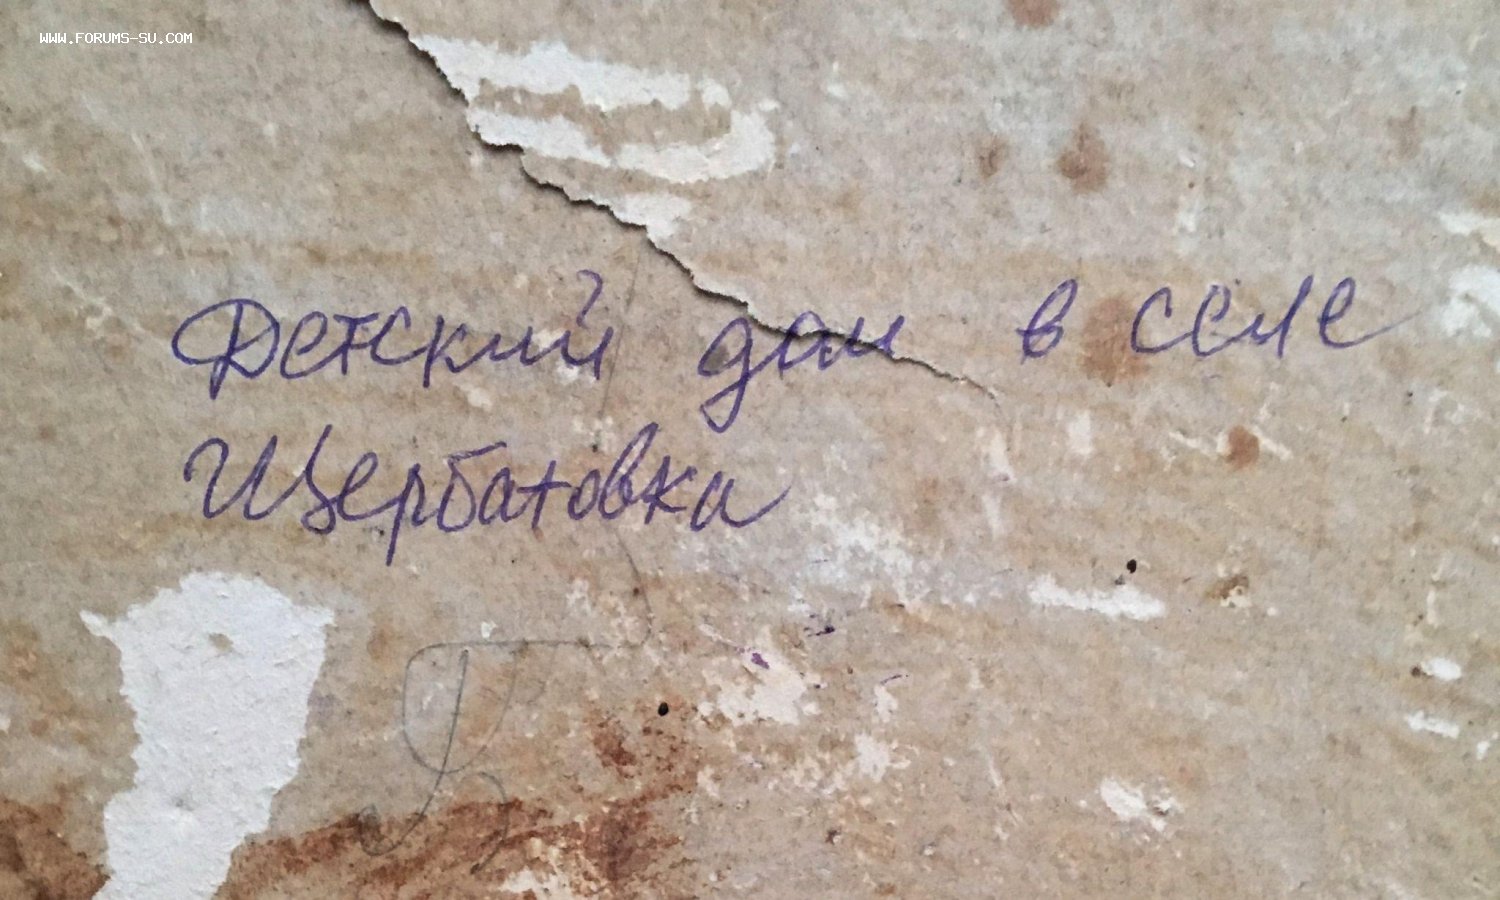 WWW.FORUMS-SU.COM
Детский дом в селе
Щербатовка